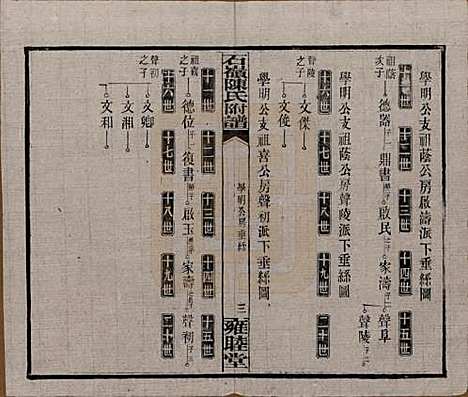 學明公支祖蔭公房啟濤派下垂絲圖
十二世 十三世 十四世 十五世
祖蔭次子 德器 鼎書 啟民 家濤 聲阜
聲陵
學明公支祖蔭公房聲陵派下垂絲圖
十六世 十七世 十八世 十九世 二十世
聲陵之子 文傑
文俊
石嶺陳氏附譜
學明公房垂絲 三
雍睦堂
學明公支祖喜公房聲初派下垂絲圖
十一世 十二世 十三世 十四世 十五世
祖喜之子 德位 復書 啟玉 家濤 聲初
十六世 十七世 十八世 十九世 二十世
聲初之子 文卿
文湘
文和